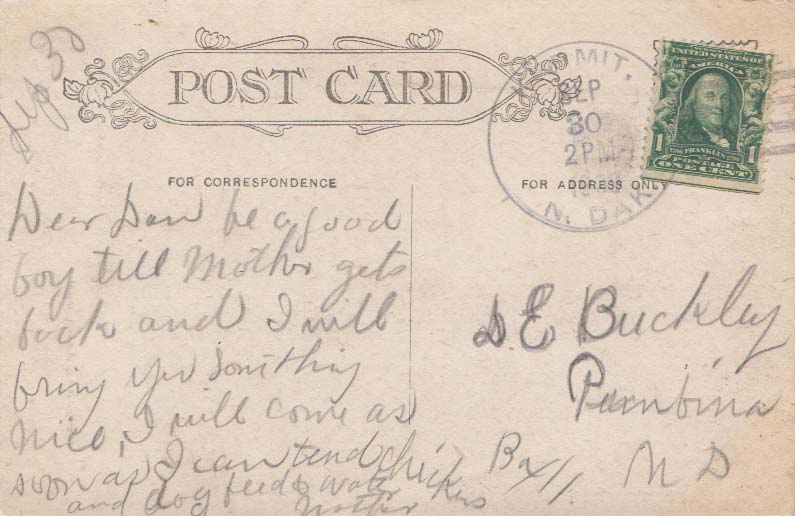 Sep 30
POST CARD
MIT.
SEP
30
2PM
N. DAK
UNITED STATES OF
AMERICA
1 1
1706 FRANKLIN 1790
POSTAGE
ONE CENT
FOR CORRESPONDENCE
FOR ADDRESS ONLY
Dear Dan be a good
boy till Mother gets
back and I will
bring you something
nice, I will come as
soon as I can tend chickens
and dog feed & water
Mother
D. E Buckley
Pembina
Box 11. N D